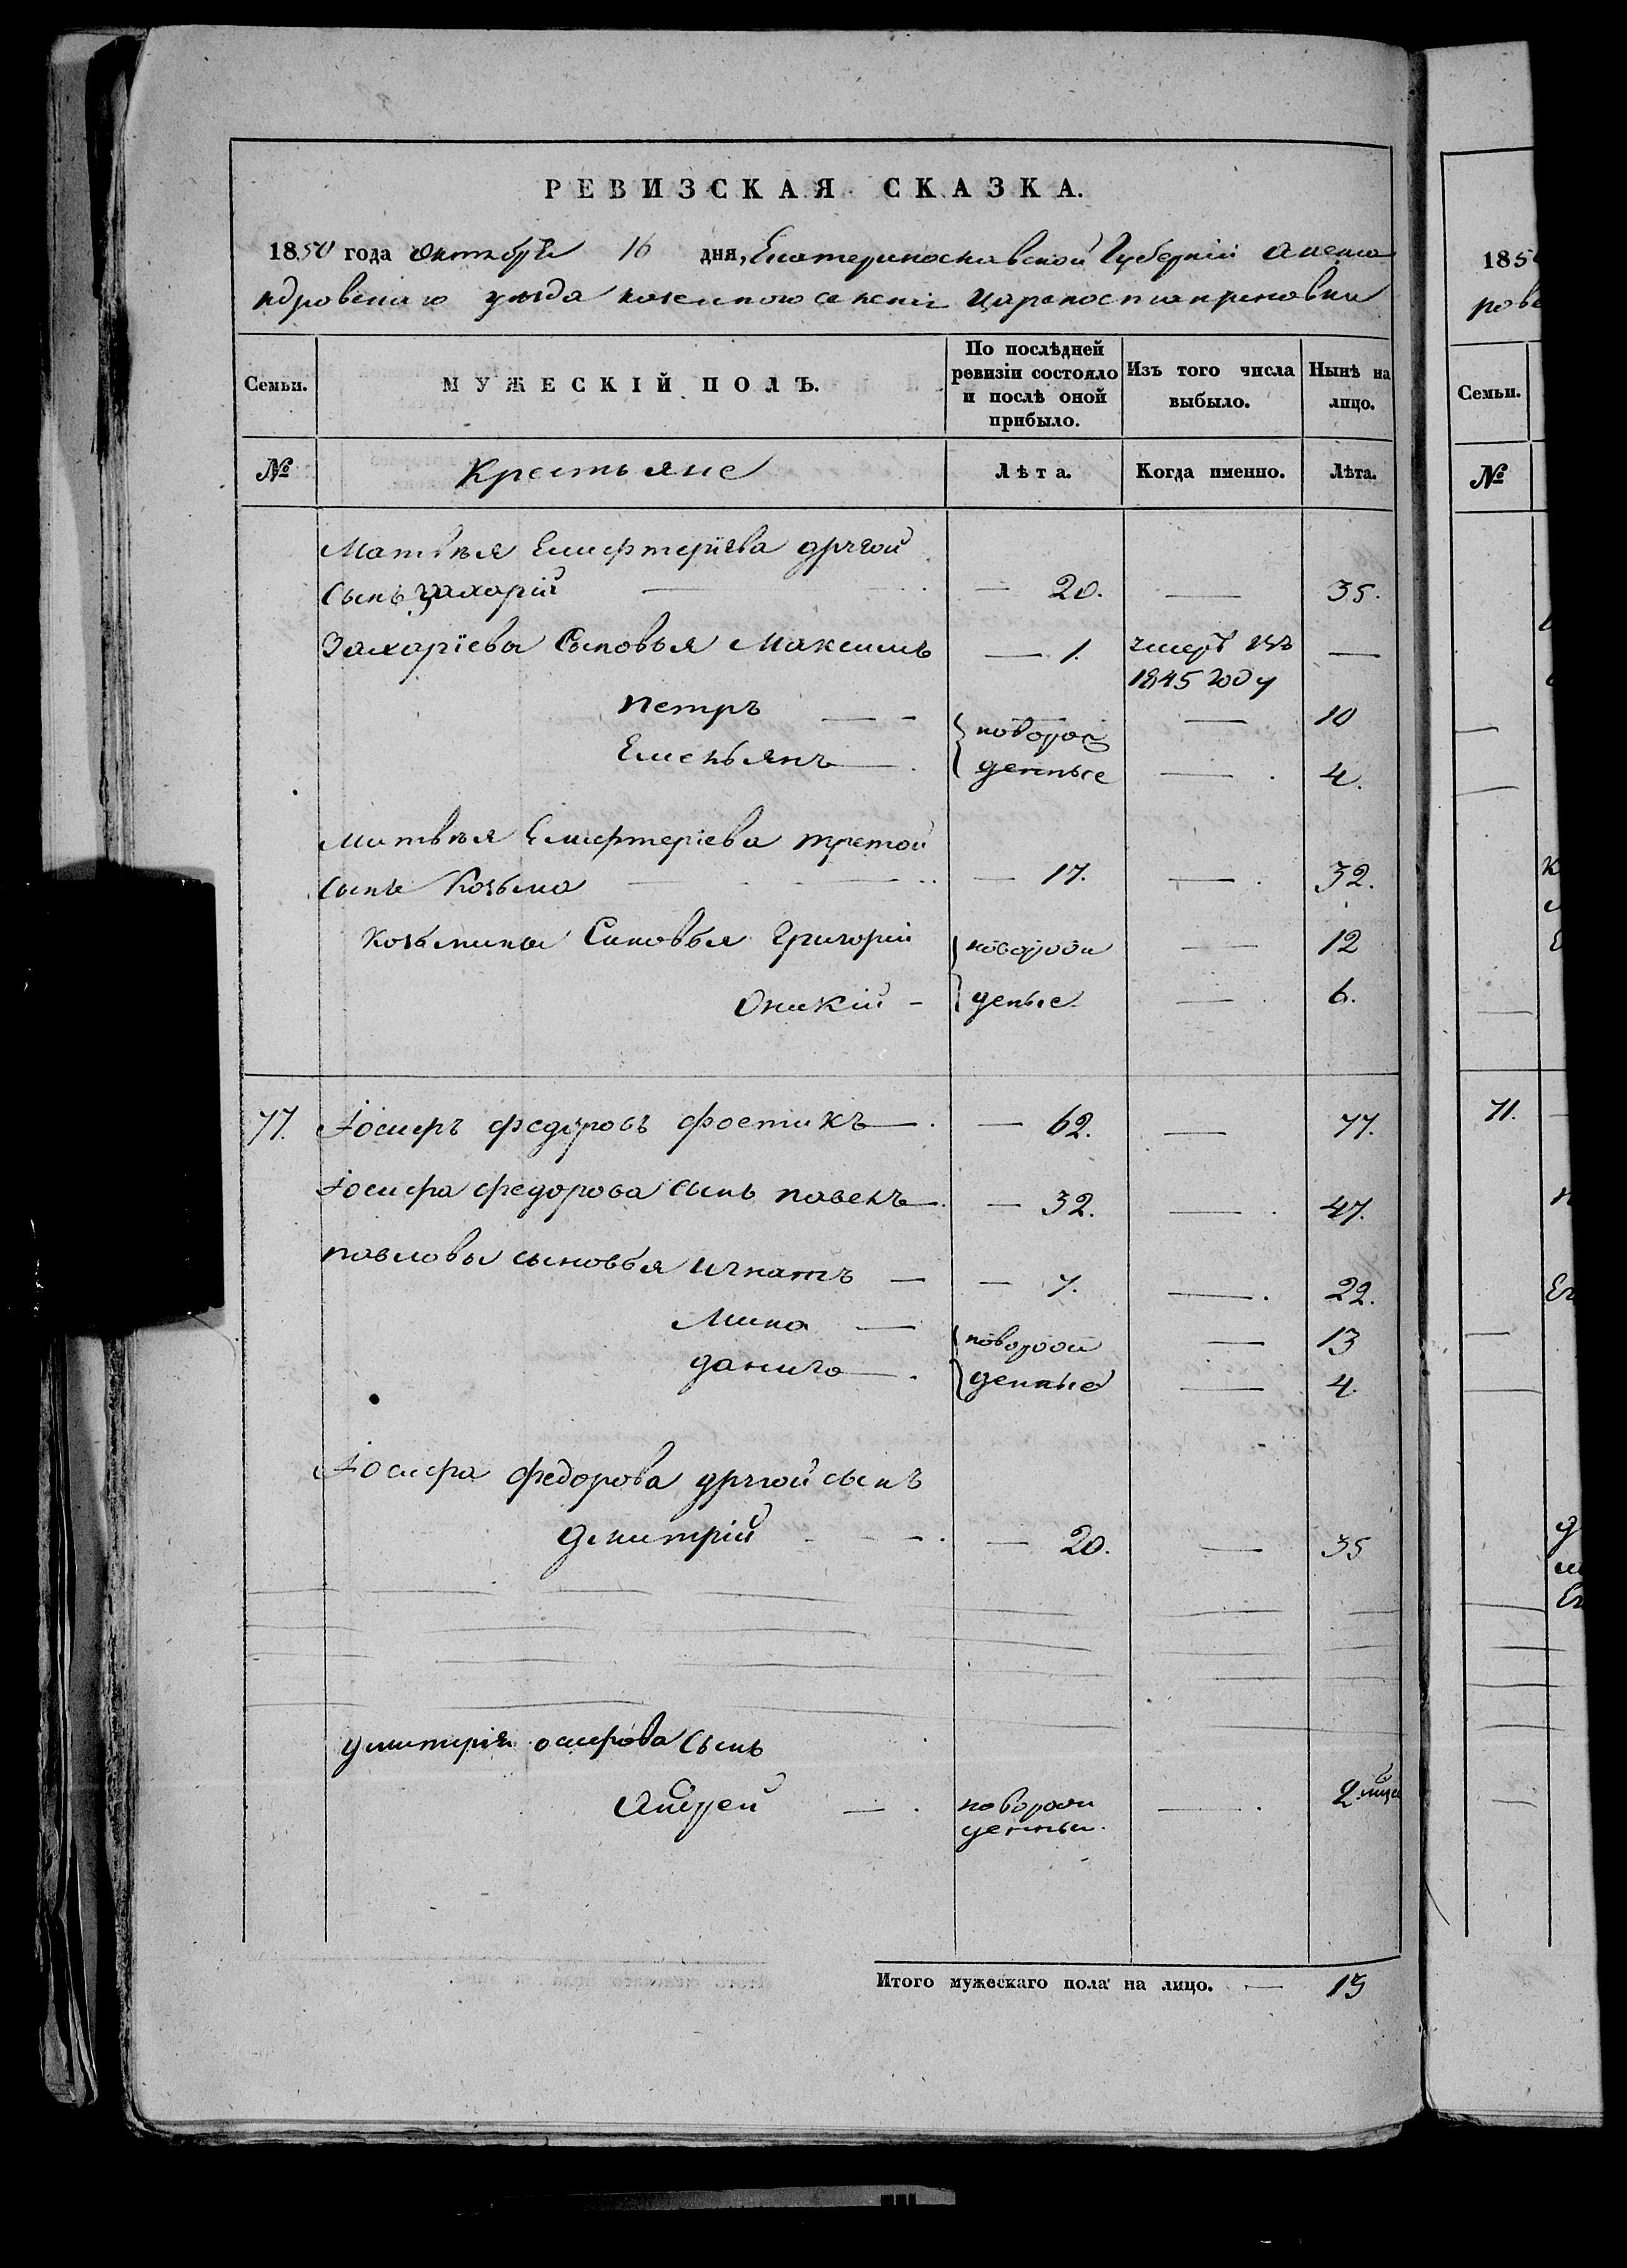 РЕВИЗСКАЯ СКАЗКА.
1850 года октября 16 дня, Екатеринославской Губерніи Алекса
ндровскаго уезда казенного селенія Цареконстантиновки
Семьи.
МУЖЕСКІЙ ПОЛЪ.
По послѣдней ревизіи состояло и послѣ оной прибыло.
Изъ того числа выбыло.
Нынѣ на лицо.
№ Крестьяне Лѣта. Когда именно. Лѣта.
Матвѣя Елифтеріева другой
сынъ Захарій — 20. — 35.
Захаріевы Сыновья Максимъ — 1. умеръ въ —
1845 году
петръ — — новорож — 10
Емельянъ — денные — 4.
Матвѣя Елифтеріева третой
сынъ Козьма — 17. — 32.
Козьмины Синовья Григорій новорож — 12
Оникій — деные — 6.
77. Іосифъ федоровъ фостикъ — 62. — 77.
Іосифа федорова сынъ павелъ — 32. — 47.
павловы сыновья игнатъ — 7. — 22.
Мина — новорож — 13
данило — денные — 4.
Іосифа федорова другой сынъ
дмитрій — 20. — 35
дмитрія осифова сынъ
Андрей — новорож — 2
денный.
Итого мужескаго пола на лицо. — 13
185
рове
Семьи.
№
71.